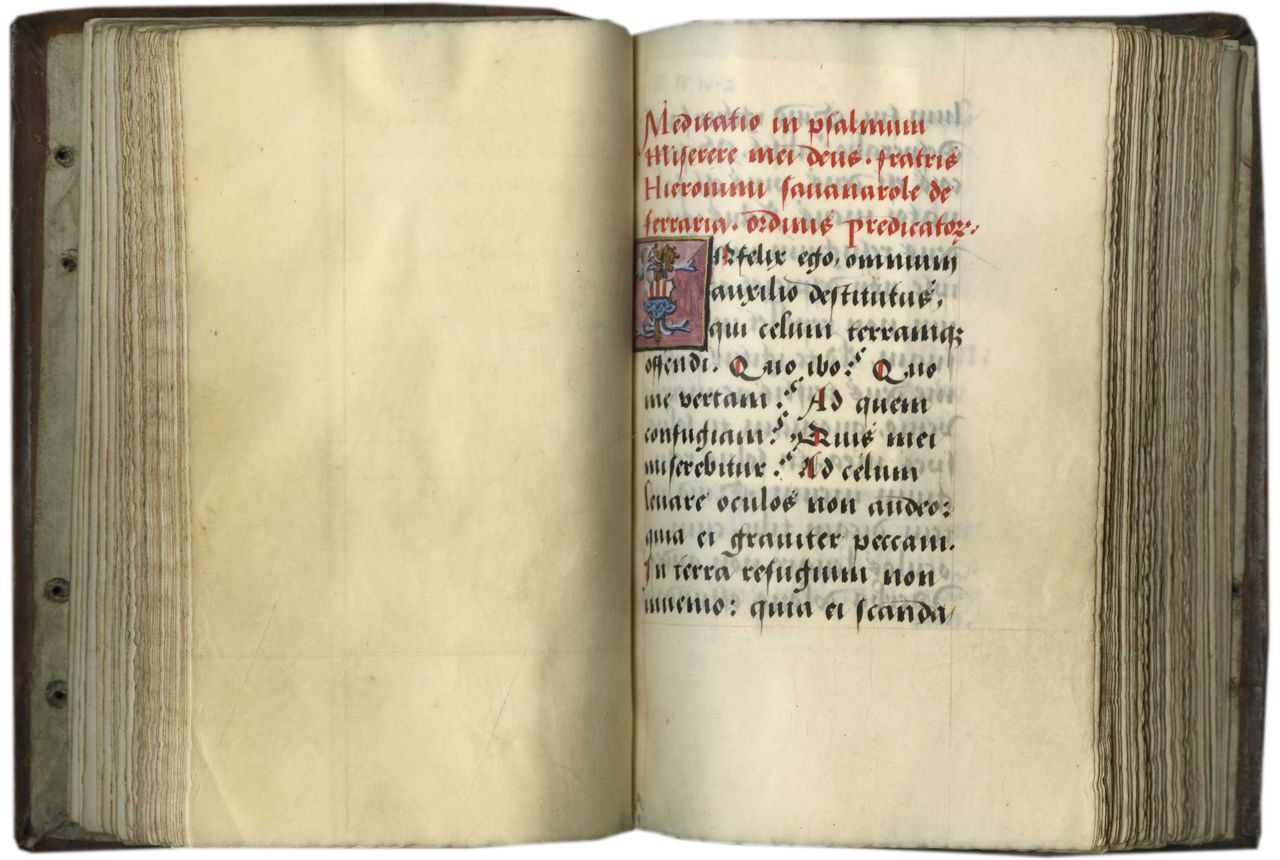 Meditatio in psalmum
Miserere mei deus. fratris
Hieronimi sauanarole de
ferraria. ordinis predicatoꝝ.
INfelix ego, omnium
auxilio destitutus,
qui celum terramqꝫ
offendi. Quo ibo? Quo
me vertam? Ad quem
confugiam? Quis mei
miserebitur? Ad celum
leuare oculos non audeo:
quia ei grauiter peccaui.
In terra refugium non
inuenio: quia ei scanda/